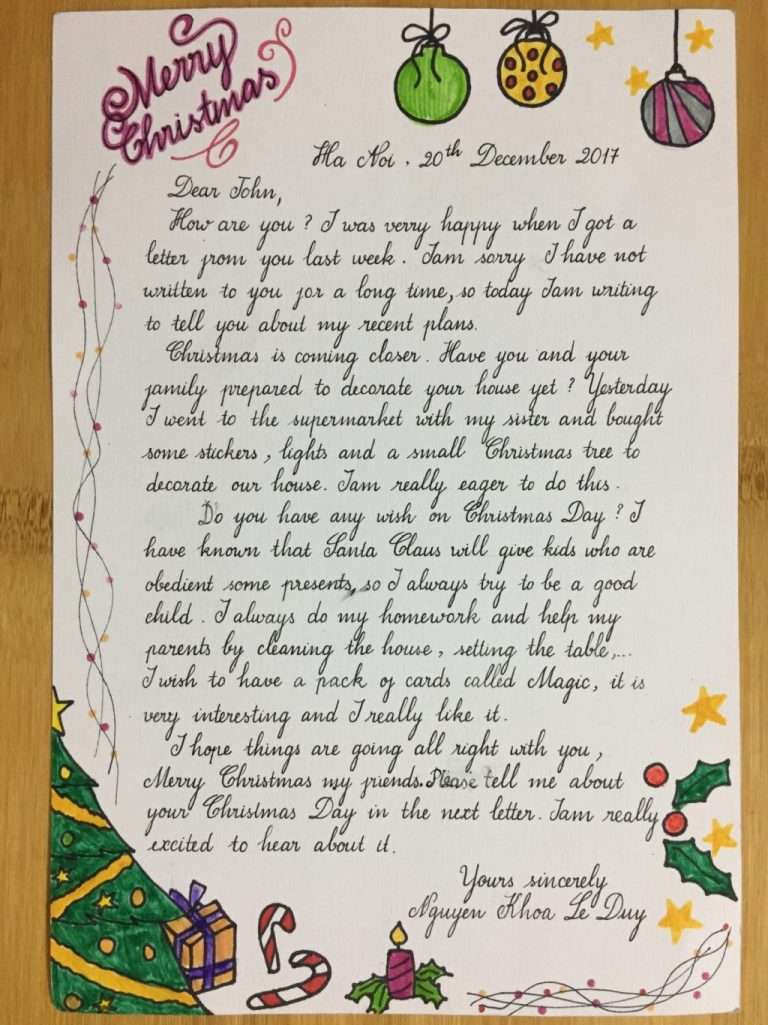 Merry
Christmas
Ha Noi, 20th December 2017
Dear John,
How are you? I was verry happy when I got a
letter from you last week. Iam sorry I have not
written to you for a long time, so today Iam writing
to tell you about my recent plans.
Christmas is coming closer. Have you and your
family prepared to decorate your house yet? Yesterday
I went to the supermarket with my sister and bought
some stickers, lights and a small Christmas tree to
decorate our house. Iam really eager to do this.
Do you have any wish on Christmas Day? I
have known that Santa Claus will give kids who are
obedient some presents, so I always try to be a good
child. I always do my homework and help my
parents by cleaning the house, setting the table,...
I wish to have a pack of cards called Magic, it is
very interesting and I really like it.
I hope things are going all right with you,
Merry Christmas my friends. Please tell me about
your Christmas Day in the next letter. Iam really
excited to hear about it.
Yours sincerely
Nguyen Khoa Le Duy